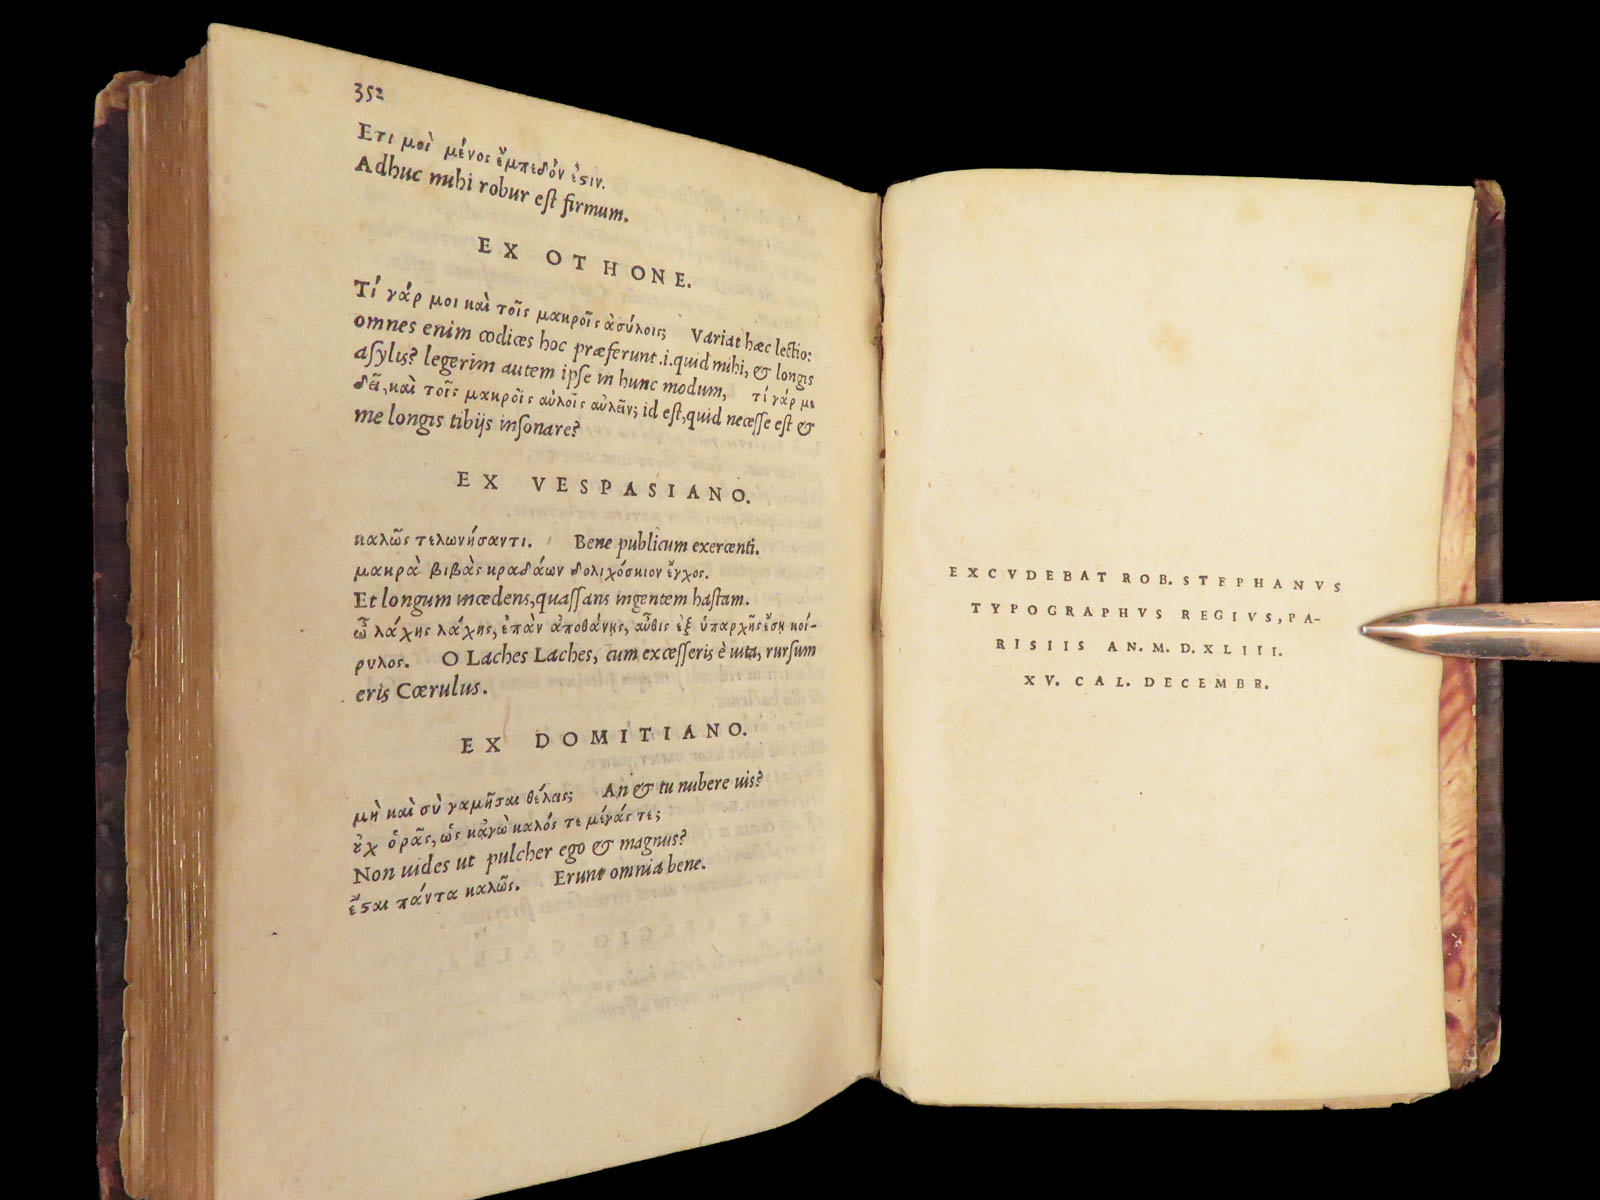 352
Ετι μοὶ μένος ἔμπεδόν ἐϛιν.
Adhuc mihi robur eſt firmum.
EX OTHONE.
Τί γάρ μοι καὶ τοῖς μακροῖς ἀσύλοις; Variat hæc lectio:
omnes enim codices hoc præferunt .i. quid mihi, & longis
aſylis? legerim autem ipſe in hunc modum, τί γάρ με
δεῖ, καὶ τοῖς μακροῖς αὐλοῖς αὐλεῖν; id eſt, quid neceſſe eſt &
me longis tibijs inſonare?
EX VESPASIANO.
καλῶς τελωνήσαντι. Bene publicum exercenti.
μακρὰ βιβὰς κραδάων δολιχόσκιον ἔγχος.
Et longum incedens, quaſſans ingentem haſtam.
ὦ λάχης λάχης, ἐπὰν ἀποθάνῃς, αὖθις ἐξ ὑπαρχῆς ἔσῃ κοί-
ρυλος. O Laches Laches, cum exceſſeris è uita, rurſum
eris Cœrulus.
EX DOMITIANO.
μὴ καὶ σὺ γαμῆσαι θέλεις; An & tu nubere uis?
ἐχ ὁρᾶς, ὡς κἀγὼ καλός τε μέγάς τε;
Non uides ut pulcher ego & magnus?
ἔϛαι πάντα καλῶς. Erunt omnia bene.
EXCVDEBAT ROB. STEPHANVS
TYPOGRAPHVS REGIVS, PA-
RISIIS AN. M. D. XLIII.
XV. CAL. DECEMBR.